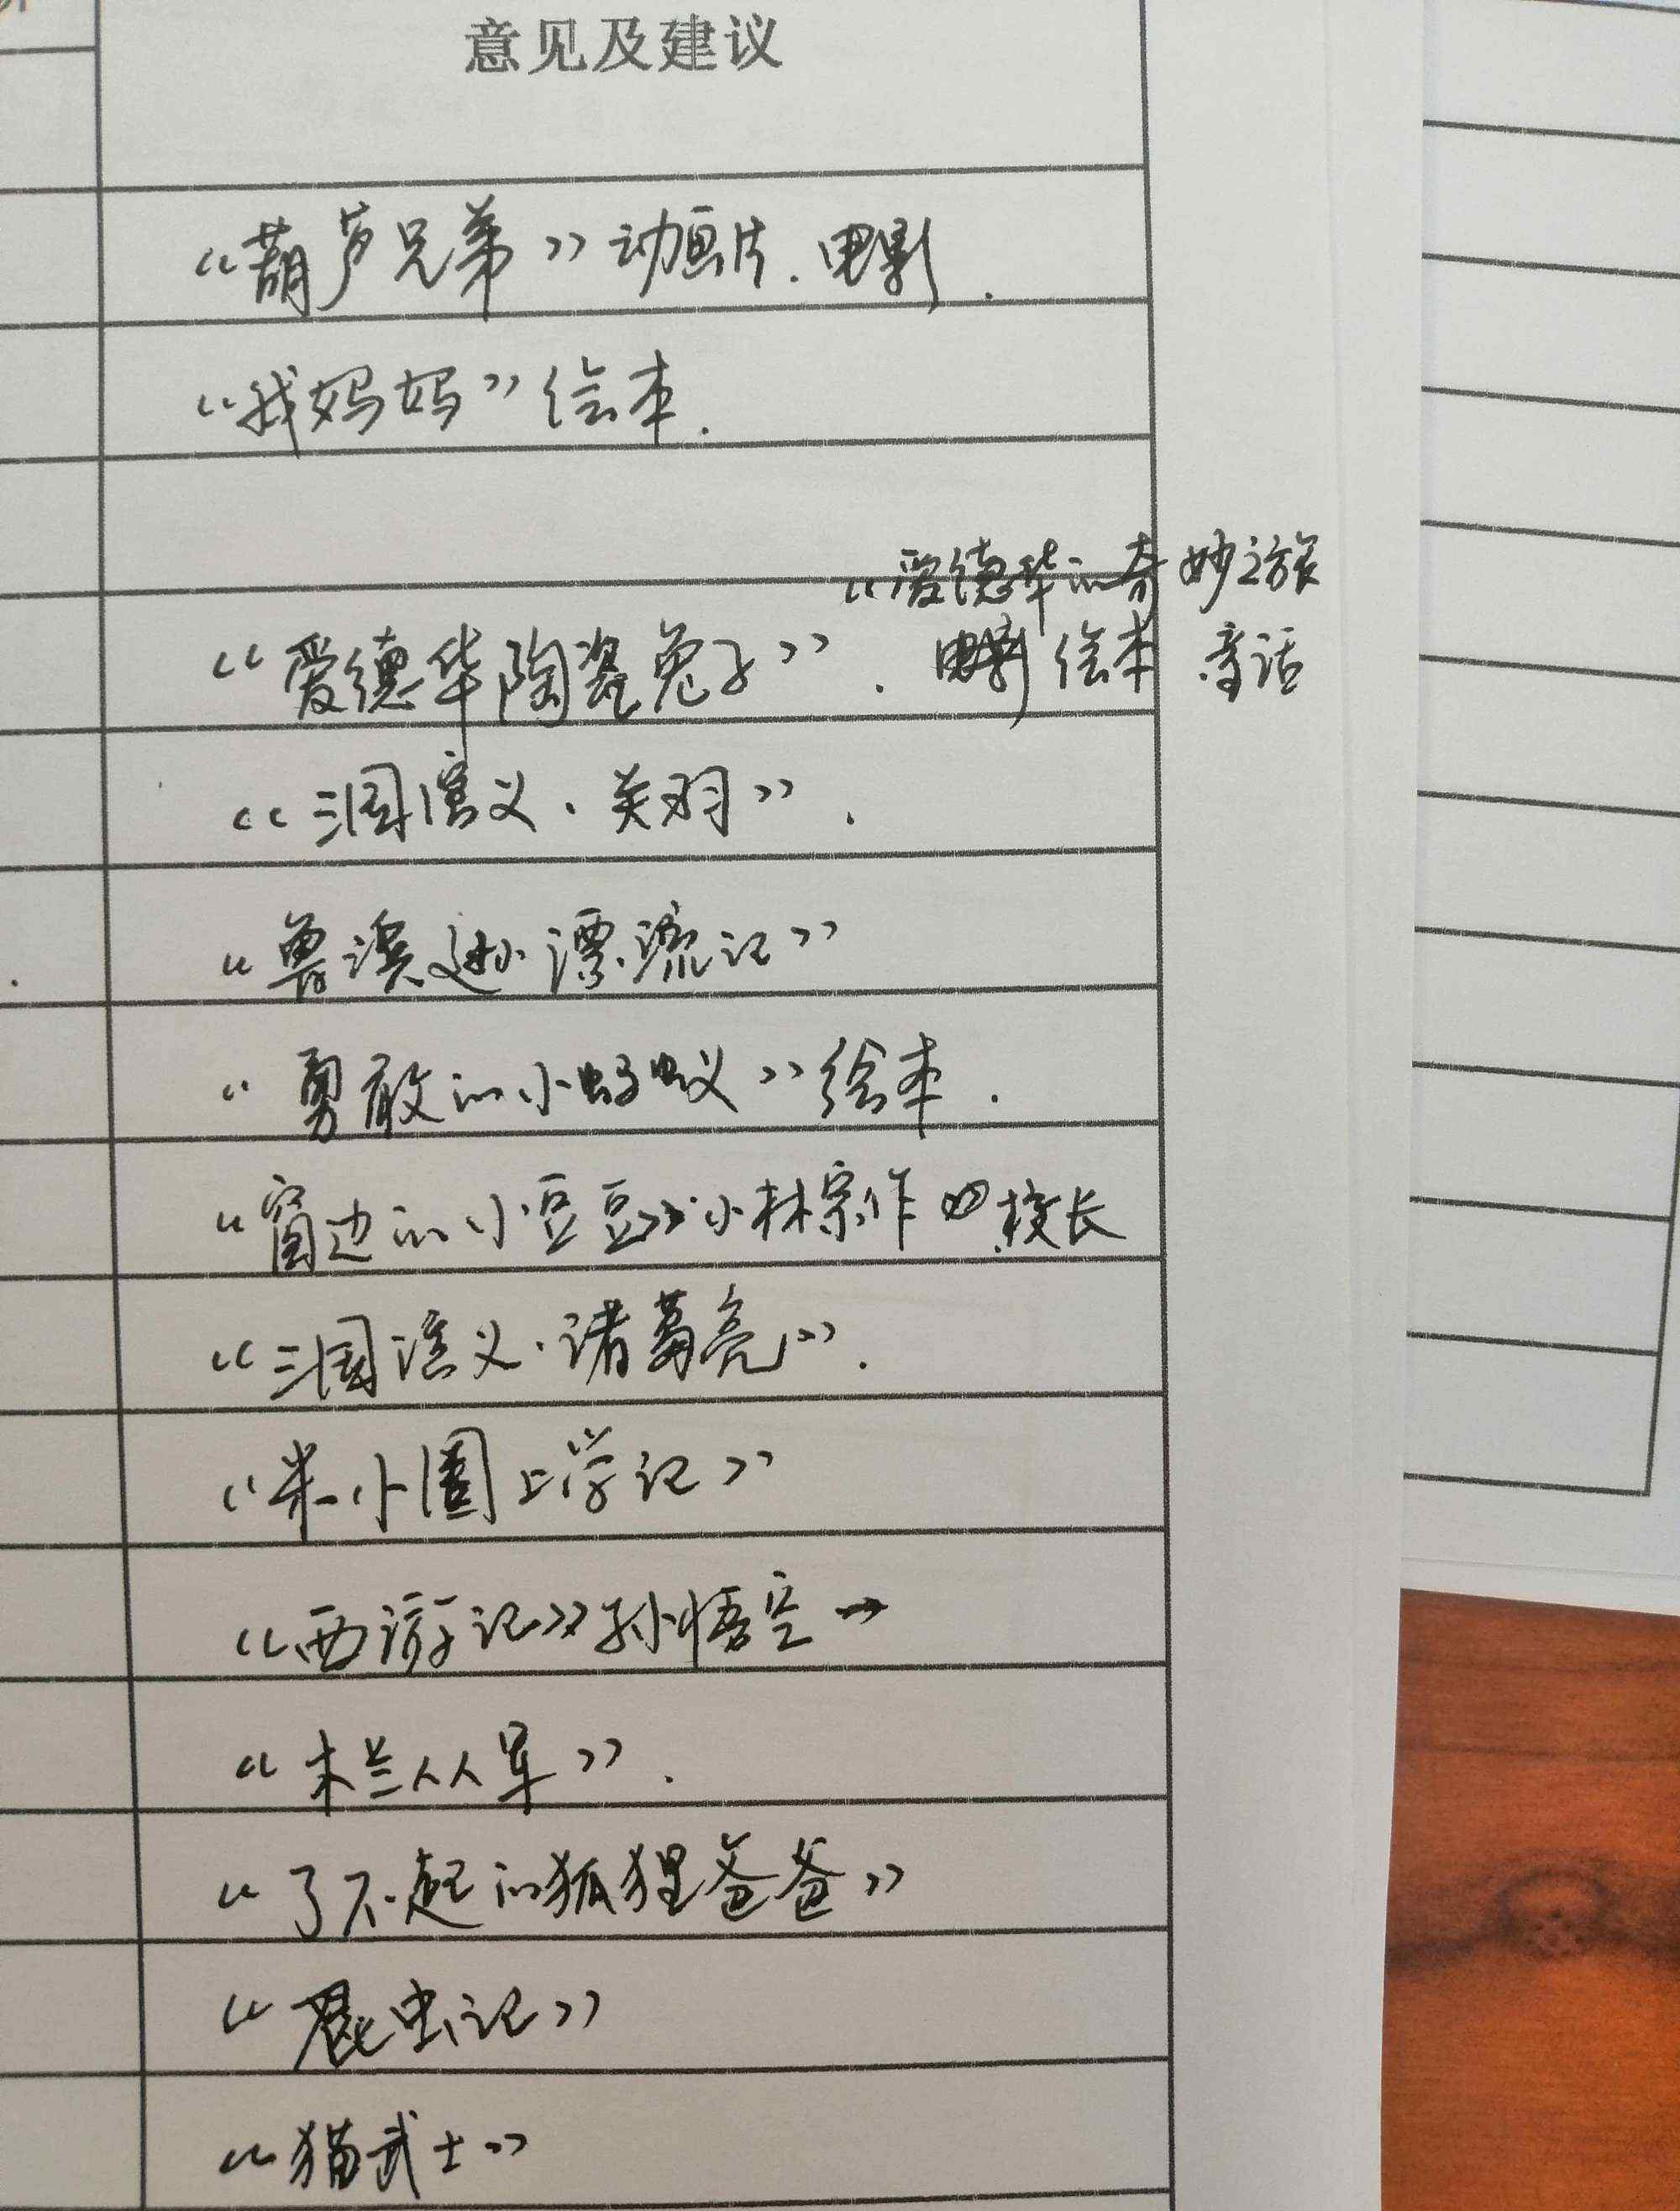 意见及建议
《葫芦兄弟》动画片.电影.
《我妈妈》绘本.
《爱德华的奇妙之旅
《爱德华陶瓷兔子》. 电影 绘本 童话
《三国演义·关羽》.
《鲁滨逊漂流记》
《勇敢的小蚂蚁》绘本.
《窗边的小豆豆》小林宗作 校长
《三国演义·诸葛亮》.
《米小圈上学记》
《西游记》孙悟空→
《木兰从军》.
《了不起的狐狸爸爸》
《昆虫记》
《猫武士》